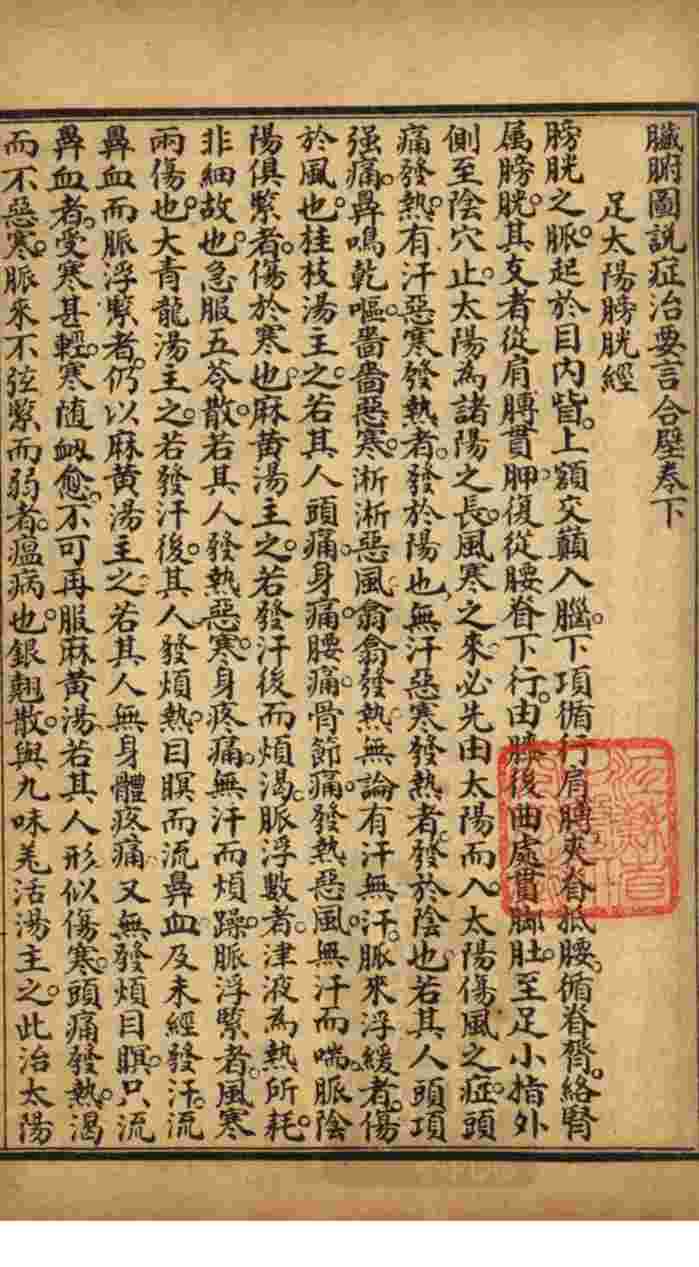 臟腑圖說症治要言合壁卷下
足太陽膀胱經
膀胱之脈。起於目內眥。上額交巔入腦。下項循行肩膊夾脊抵腰。循脊膂。絡腎
属膀胱。其支者從肩膊貫胛。復從腰脊下行。由膝後曲處貫腳肚。至足小指外
側至陰穴止。太陽為諸陽之長。風寒之來。必先由太陽而入。太陽傷風之症。頭
痛發熱。有汗惡寒發熱者。發於陽也。無汗惡寒發熱者。發於陰也。若其人頭項
强痛。鼻鳴乾嘔。嗇嗇惡寒。淅淅惡風。翕翕發熱。無論有汗無汗。脈來浮緩者。傷
於風也。桂枝湯主之。若其人頭痛。身痛。腰痛。骨節痛。發熱惡風。無汗而喘。脈陰
陽俱緊者。傷於寒也。麻黃湯主之。若發汗後而煩渴。脈浮數者。津液為熱所耗。
非細故也。急服五苓散。若其人發熱惡寒。身疼痛。無汗而煩躁。脈浮緊者。風寒
兩傷也。大青龍湯主之。若發汗後。其人發煩熱。目瞑而流鼻血。及未經發汗。流
鼻血而脈浮緊者。仍以麻黃湯主之。若其人無身體疼痛。又無發煩目瞑。只流
鼻血者。受寒甚輕。寒随衂愈。不可再服麻黃湯。若其人形似傷寒。頭痛發熱。渴
而不惡寒。脈來不弦緊而弱者。瘟病也。銀翹散。與九味羌活湯主之。此治太陽